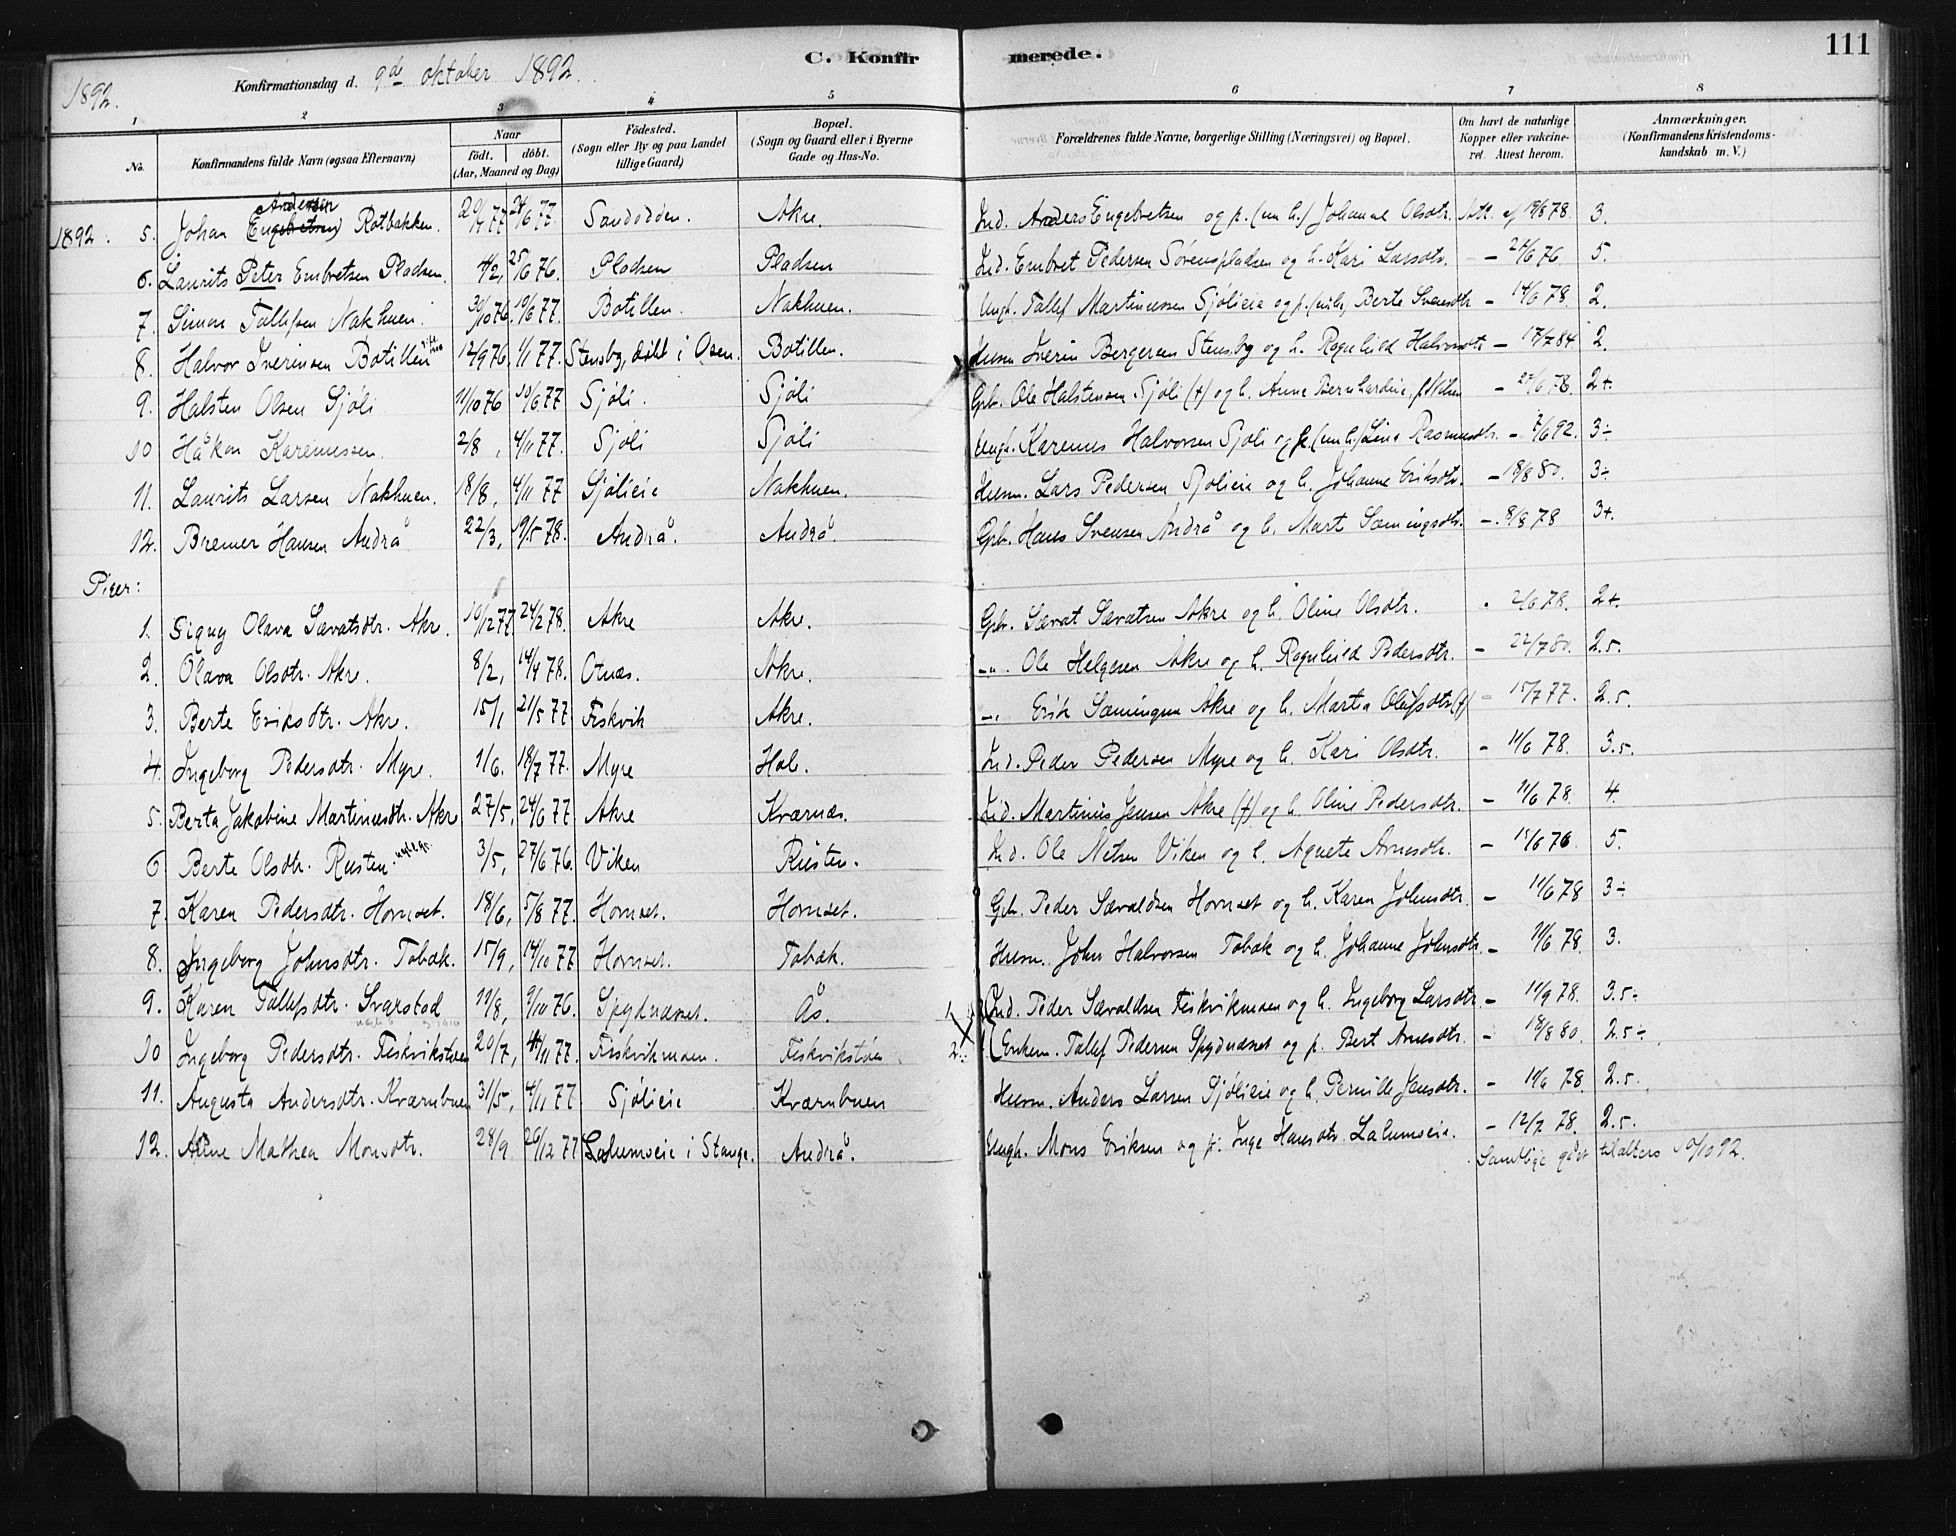 1892.
Konfirmationsdag d. 9de oktober 1892.
C. Konfirmerede.
111
1 2 3 4 5 6 7 8
No. Konfirmandens fulde Navn (ogsaa Efternavn) Naar født. døbt. (Aar, Maaned og Dag) Fødested. (Sogn eller By og paa Landet tillige Gaard) Bopæl. (Sogn og Gaard eller i Byerne Gade og Hus-No. Forældrenes fulde Navne, borgerlige Stilling (Næringsvei) og Bopæl. Om havt de naturlige Kopper eller vakcineret. Attest herom. Anmærkninger. (Konfirmandens Kristendomskundskab m. V.)
Andersen
1892. 5. Johan (Engebretsen) Rotbakken. 24/6 77. Sandodden. Akre. Ind. Anders Engebretsen og p. (um h.) Johanne Olsdtr. Att. af 19/8 78. 3.
6. Laurits Peter Embretsen Pladsen. 4/2, 25/6 76. Pladsen Pladsen Ind. Embret Pedersen Sørenspladsen og h. Kari Larsdtr. – 24/6 76 5.
7. Simon Tollefsen Nakhuen. 30/10 76. 10/6 77. Botillen. Nakhuen. Ungk. Tollef Martinussen Sjølieie og p. Berte Svensdtr – 14/6 78 2.
8. Halvor Iverinsen Botillen 12/9 76. 1/1 77. Stensby, døbt i Osen. Botillen. Husm Iverin Bergersen Stensby og h. Ragnhild Halvorsdtr – 17/7 84 2.
9. Halsten Olsen Sjøli 11/10 76 10/6 77 Sjøli. Sjøli Gbr. Ole Halstensen Sjøli (+) og h. Anne Bernhardine – 25/6 78. 2+.
10 Håkon Karenussen. 2/8, 4/11 77. Sjøli Sjøli Ungk. Karenus Halvorsen Sjøli og p. (um h.) Lina Rasmusdtr. – 7/6 92. 3÷
11. Laurits Larsen Nakhuen. 18/8, 4/11 77 Sjølieie Nakhuen. Husm. Lars Pedersen Sjølieie og h. Johanne Eriksdtr. – 18/8 80. 3÷
12. Bremer Hansen Andrå 22/3, 19/5 78. Andrå. Andrå. Gbr. Hans Svensen Andrå og h. Mart Sæmingsdtr. – 8/8 78 3+.
Piger:
1. Signy Olava Sævatsdtr. Akre. 10/12 77. 24/2 78. Akre Akre. Gbr. Sævat Sævatsen Akre og h. Oline Olsdtr. 2/6 78. 2+.
2. Olava Olsdtr. Akre. 8/2, 14/4 78. Otnæs. Akre. -"- Ole Helgesen Akre og h. Ragnhild Pedersdtr. – 22/7 80. 2.5.
3. Berte Eriksdtr. Akre. 15/1 21/5 77 Fiskvik Akre. -"- Erik Sæmingsen Akre og h. Martia Olufsdtr (+) – 15/7 77. 2.5.
4. Ingeborg Pedersdtr. Myre. 1/6. 18/7 77. Myre Hol. Ind. Peder Pedersen Myre og h. Kari Olsdtr. – 11/6 78. 3.5.
5. Berta Jakobine Martinusdtr. Akre 27/5, 24/6 77 Akre Kværnæs. Ind. Martinus Jensen Akre (+) og h. Oline Pedersdtr. – 11/6 78. 4.
6 Berte Olsdtr. Rusten 3/5, 27/6 76. Viken Rusten. Ind. Ole Nilsen Viken og h. Agnete Arnesdtr. – 15/6 76 5.
7. Karen Pedersdtr. Hornset. 18/6, 5/8 77. Hornset. Hornset. Gbr. Peder Sævaldsen Hornset og h. Karen Johnsdtr. – 11/6 78 3÷
8. Ingeborg Johnsdtr. Tobæk. 15/9, 14/10 77. Hornset. Tobæk. Husm. John Halvorsen Tobæk og h. Johanne Johnsdtr – 11/6 78. 3.
9. Karen Tollefsdtr. Svarstad 19/8, 9/10 76. Spydnæset. Ås. Ind. Peder Sævaldsen Fiskvikmoen og h. Ingeborg Larsdtr – 11/9 78. 3.5÷
10 Ingeborg Pedersdtr. Fiskvikstøen 20/7, 4/11 77. Fiskvikmoen. Fiskvikstøen 2. Enkem. Tollef Pedersen Spydnæset og p. Bert Arnesdtr. – 18/8 80. 2.5÷
11. Augusta Andersdtr. Kværnbuen 31/5, 4/11 77 Sjølieie Kværnbuen Husm. Anders Larsen Sjølieie og h. Pernille Jensdtr. – 11/6 78. 2.5.
12. Mathea Monsdtr. 28/9 26/12 77 Lalumseie i Stange. Andrå. Ungk. Mons Eriksen og p. Inge Hansdtr. Lalumseie. – 12/7 78. 2.5.
Samtlige gået til alters 10/10 92.